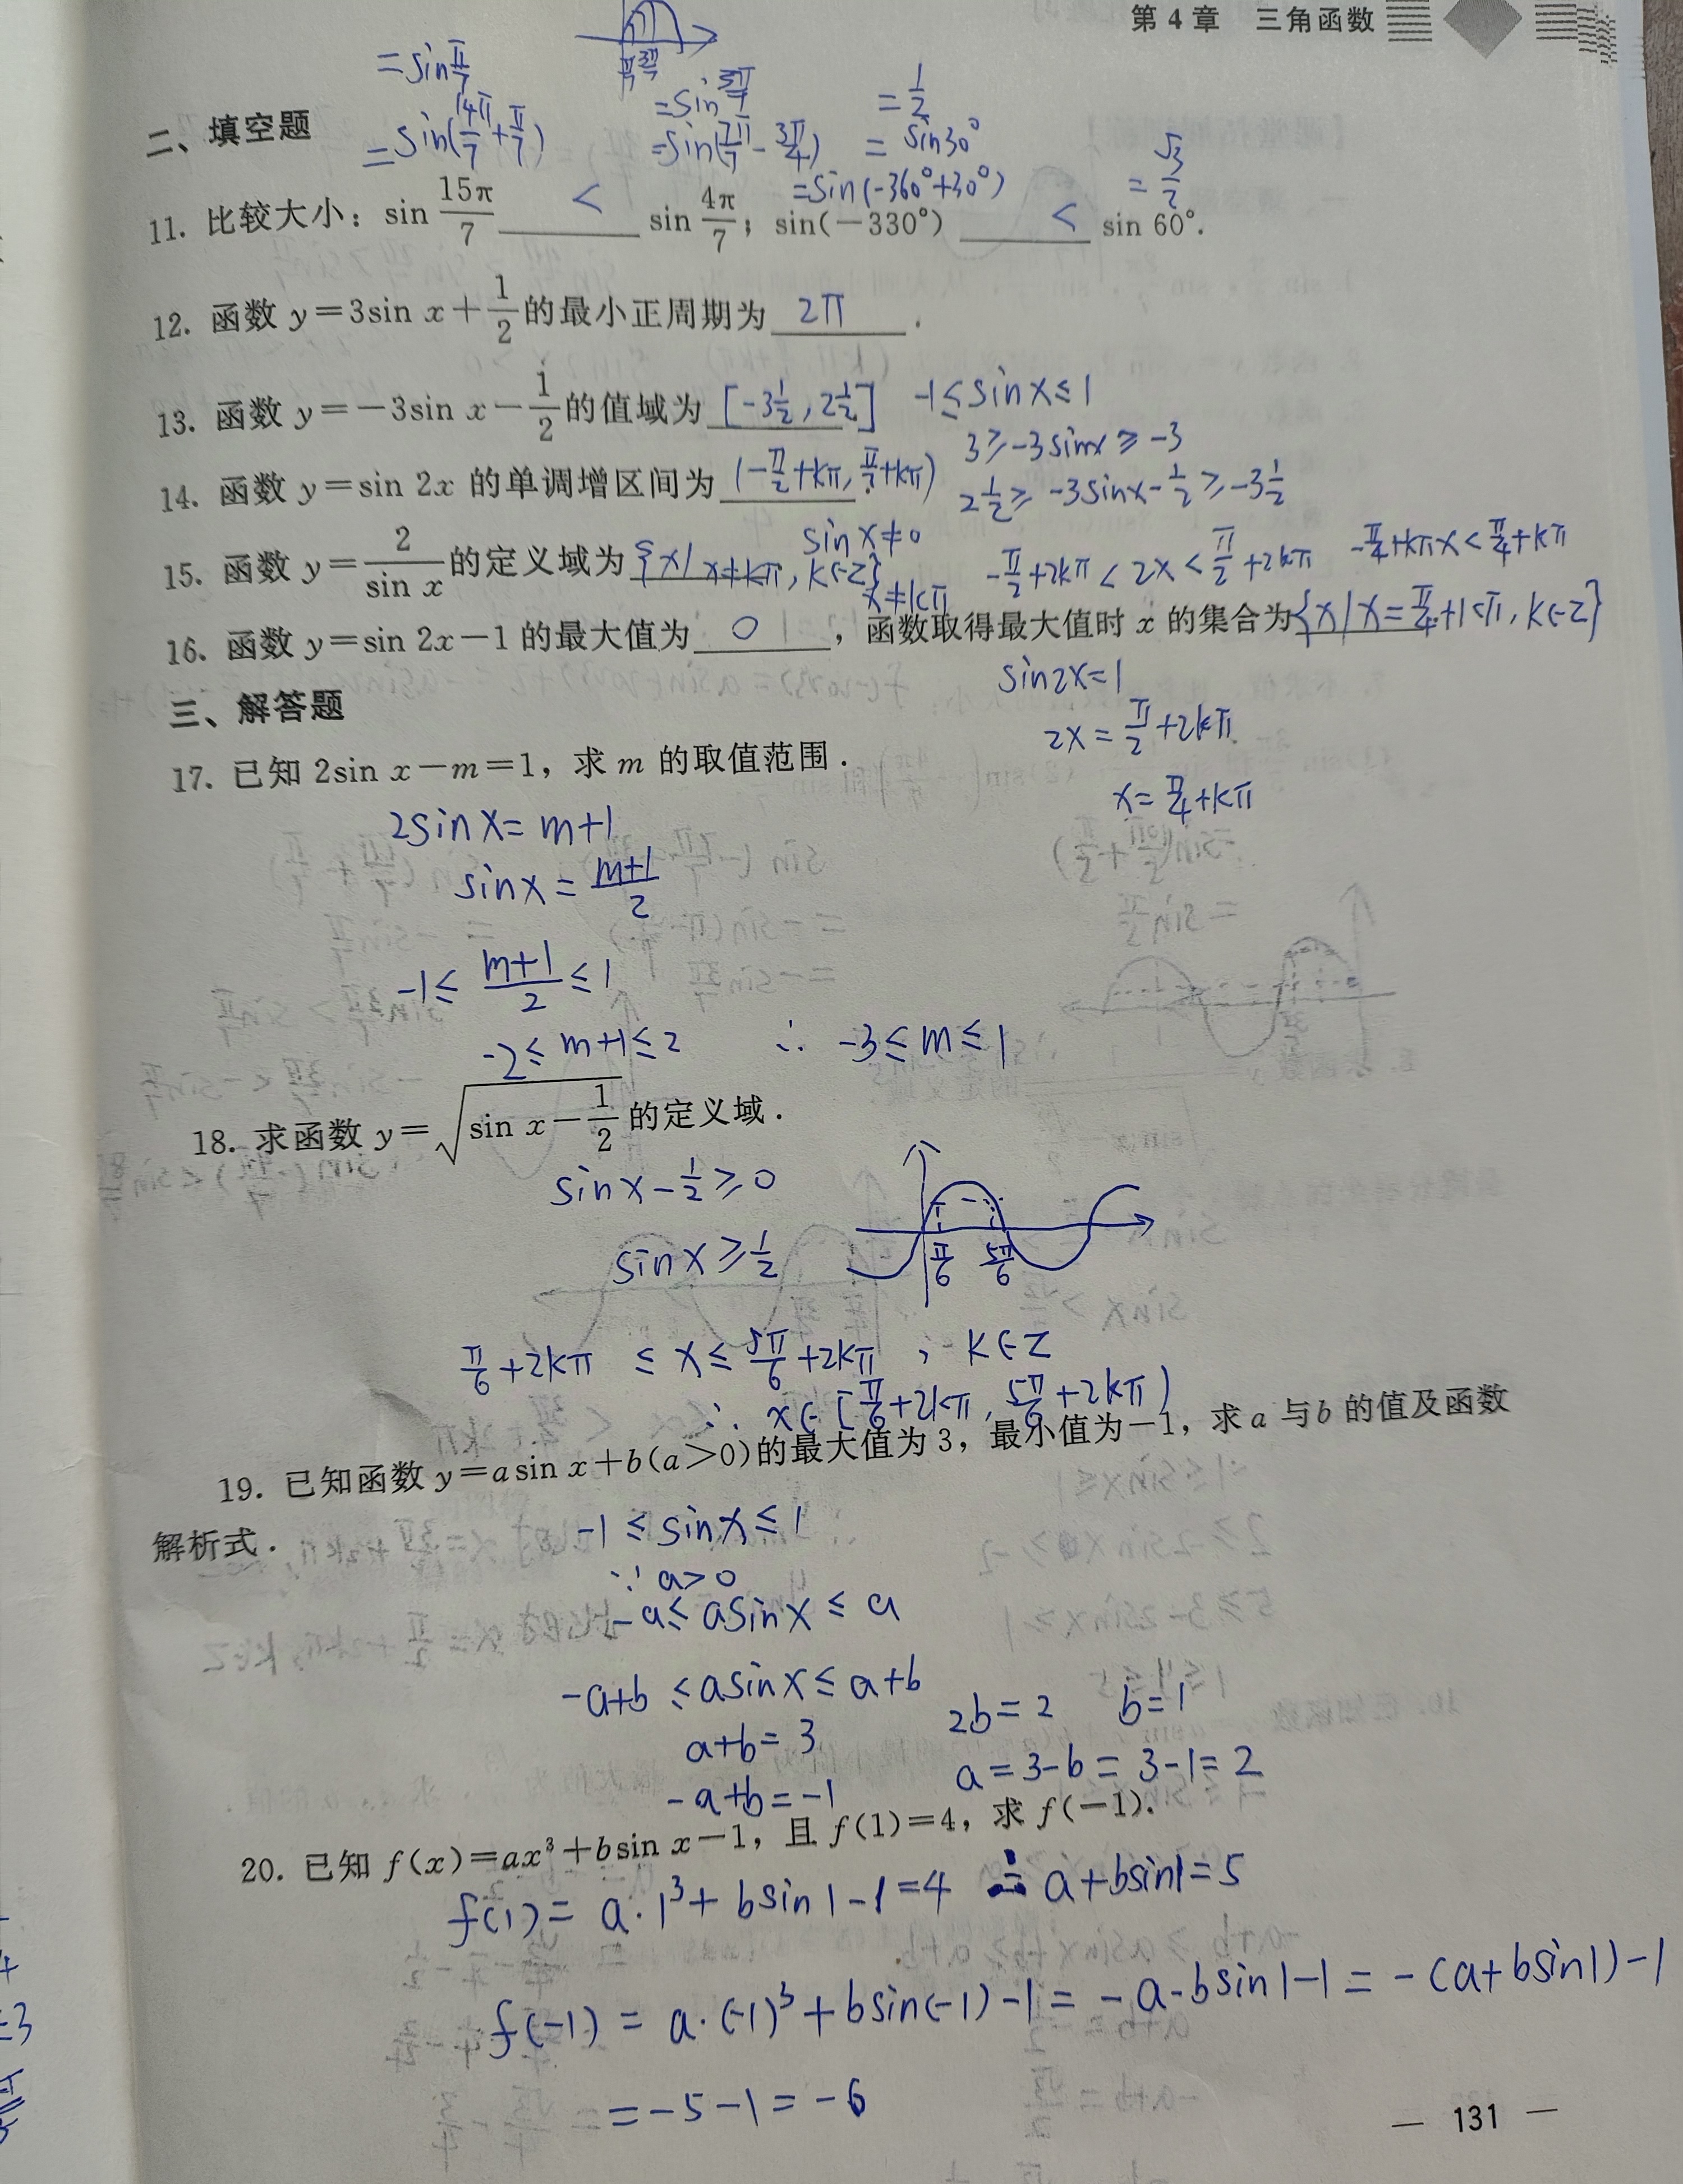 第 4 章 三角函数
π/7 3π/7
=sin π/7
=sin(14π/7+π/7)
=sin 3π/7
=sin(7π/7-3π/4)
=1/2
=sin30°
=sin(-360°+30°)
=√3/2
二、填空题
11. 比较大小：sin 15π/7 < sin 4π/7；sin(-330°) < sin 60°.
12. 函数 y=3sin x+1/2的最小正周期为 2π .
13. 函数 y=-3sin x-1/2的值域为 [-3½, 2½]
-1≤sinx≤1
3≥-3sinx≥-3
2½≥-3sinx-1/2≥-3½
14. 函数 y=sin 2x 的单调增区间为 (-π/2+kπ, π/2+kπ)
-π/2+2kπ<2x<π/2+2kπ
-π/4+kπ x<π/4+kπ
15. 函数 y=2/sin x的定义域为 {x|x≠kπ, k∈Z}
sinx≠0
x≠kπ
16. 函数 y=sin 2x-1 的最大值为 0 ，函数取得最大值时 x 的集合为 {x|x=π/4+kπ, k∈Z}
sin2x=1
2x=π/2+2kπ
x=π/4+kπ
三、解答题
17. 已知 2sin x-m=1，求 m 的取值范围.
2sinx=m+1
sinx=(m+1)/2
-1≤(m+1)/2≤1
-2≤m+1≤2 ∴ -3≤m≤1
18. 求函数 y=√(sin x-1/2)的定义域.
sinx-1/2≥0
sinx≥1/2
π/6 5π/6
π/6+2kπ ≤x≤5π/6+2kπ , k∈Z
∴ x∈[π/6+2kπ, 5π/6+2kπ)
19. 已知函数 y=asin x+b(a>0)的最大值为3，最小值为-1，求 a 与b 的值及函数
解析式.
-1≤sinx≤1
∵ a>0
-a≤asinx≤a
-a+b≤asinx≤a+b
a+b=3
-a+b=-1
2b=2 b=1
a=3-b=3-1=2
20. 已知 f(x)=ax³+bsin x-1，且 f(1)=4，求 f(-1).
f(1)=a·1³+bsin1-1=4 ∴ a+bsin1=5
f(-1)=a·(-1)³+bsin(-1)-1=-a-bsin1-1=-(a+bsin1)-1
=-5-1=-6
— 131 —